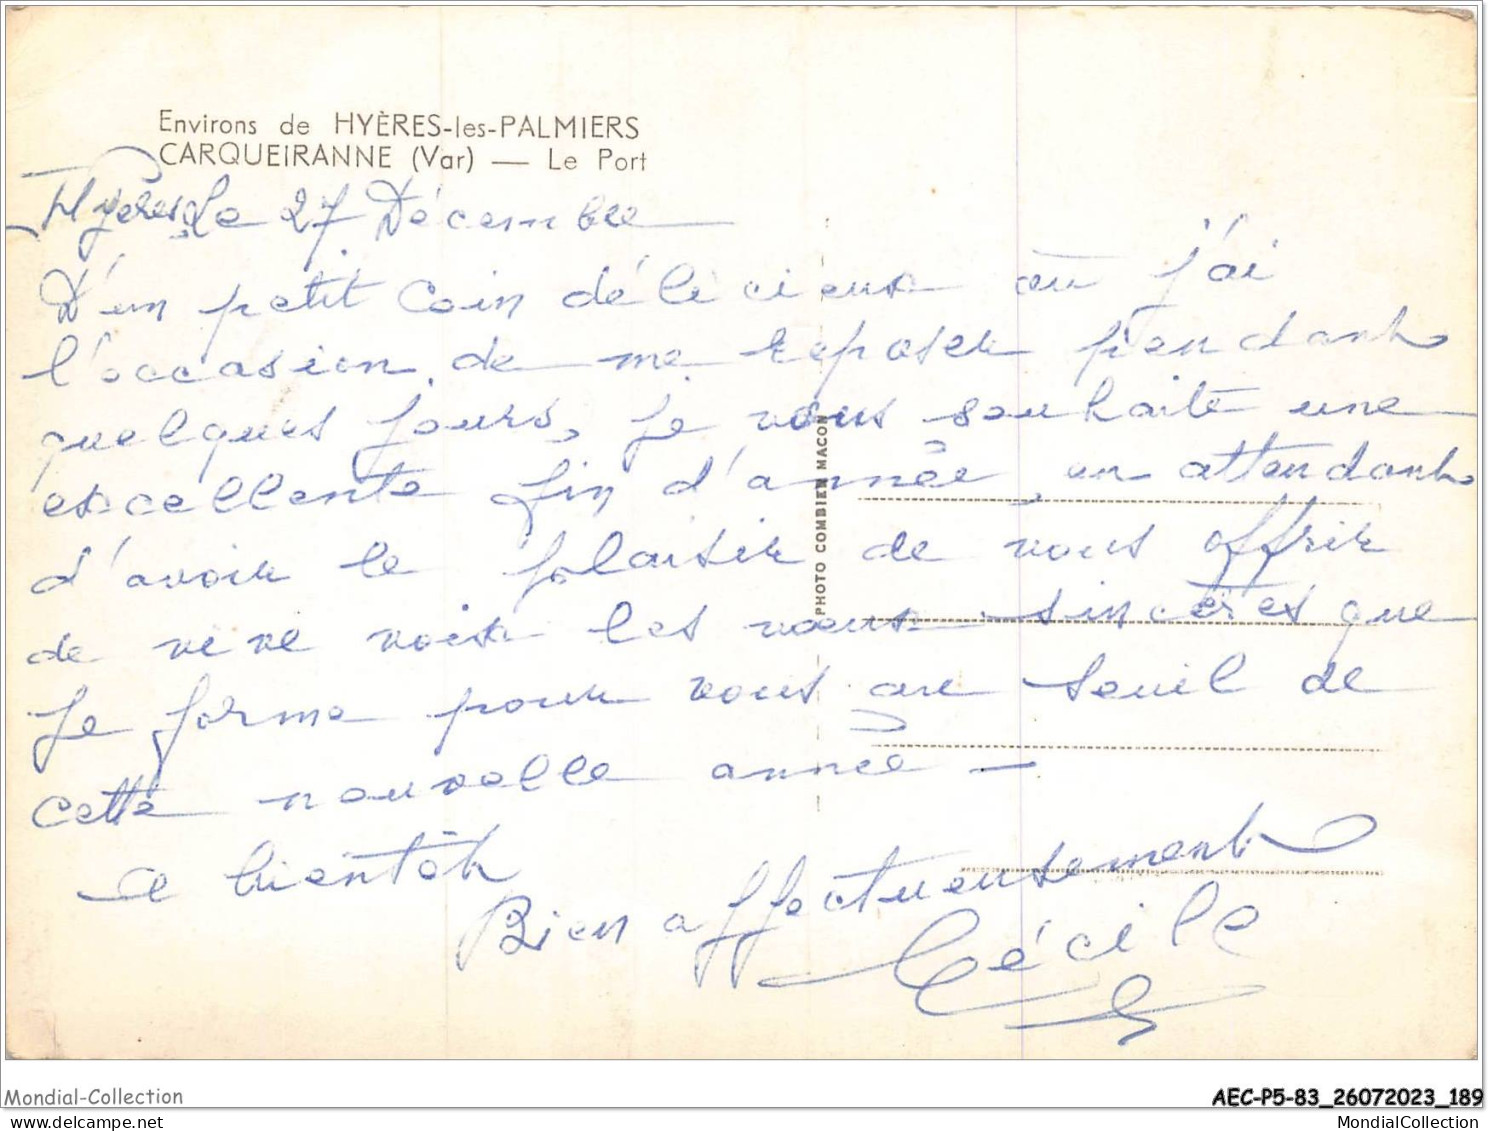 Environs de HYÈRES-les-PALMIERS
CARQUEIRANNE (Var) — Le Port
Hyères le 27 Décembre
D'un petit coin délicieux où j'ai
l'occasion de me reposer pendant
quelques jours, je vous souhaite une
excellente fin d'année, en attendant
d'avoir le plaisir de vous offrir
de vive voix les vœux sincères que
je forme pour vous au seuil de
cette nouvelle année —
a bientôt
Bien affectueusement
Cécile
PHOTO COMBIER MACON
Mondial-Collection
AEC-P5-83_26072023_189
www.delcampe.net
MondialCollection